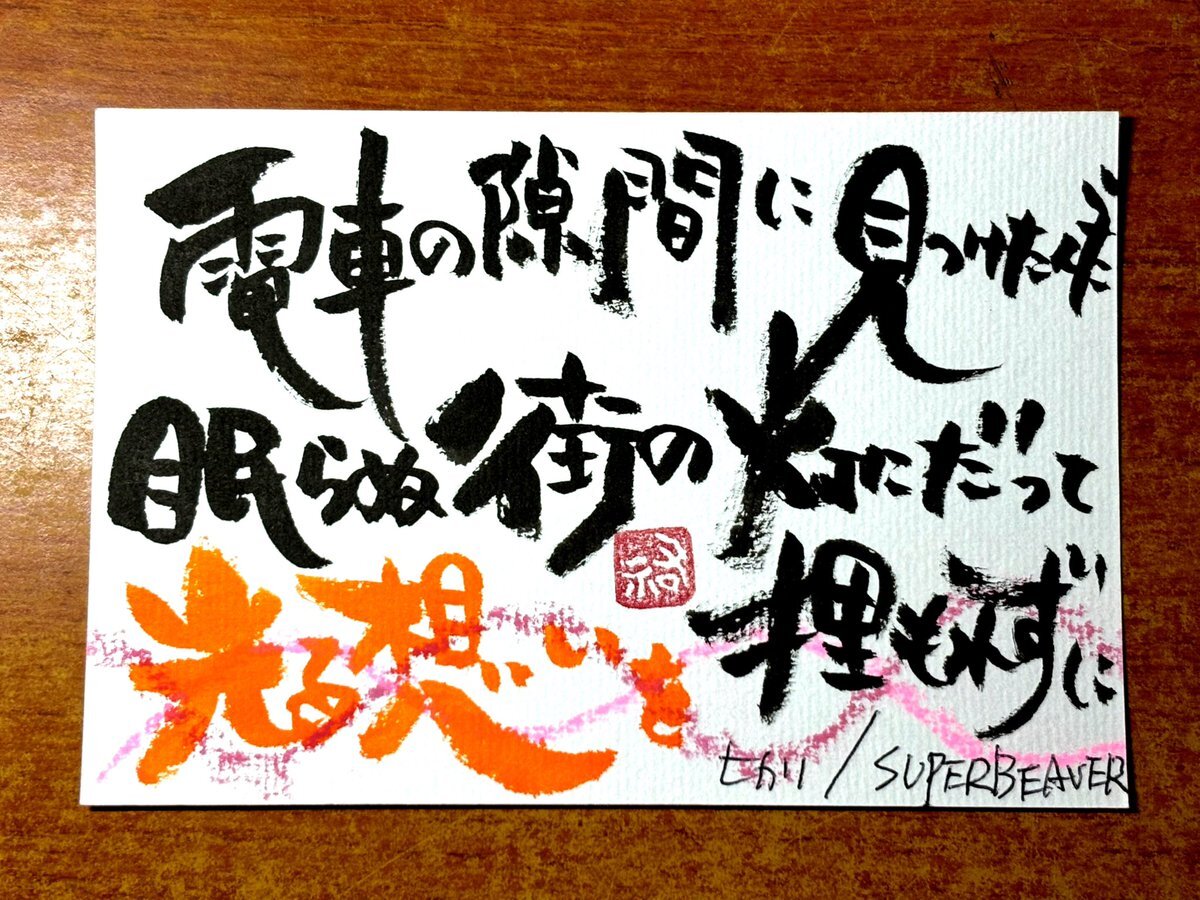 電車の隙間に見つけたんだ
眠らぬ街の灯にだって
埋もれずに
光る想いを
ひかり / SUPERBEAVER